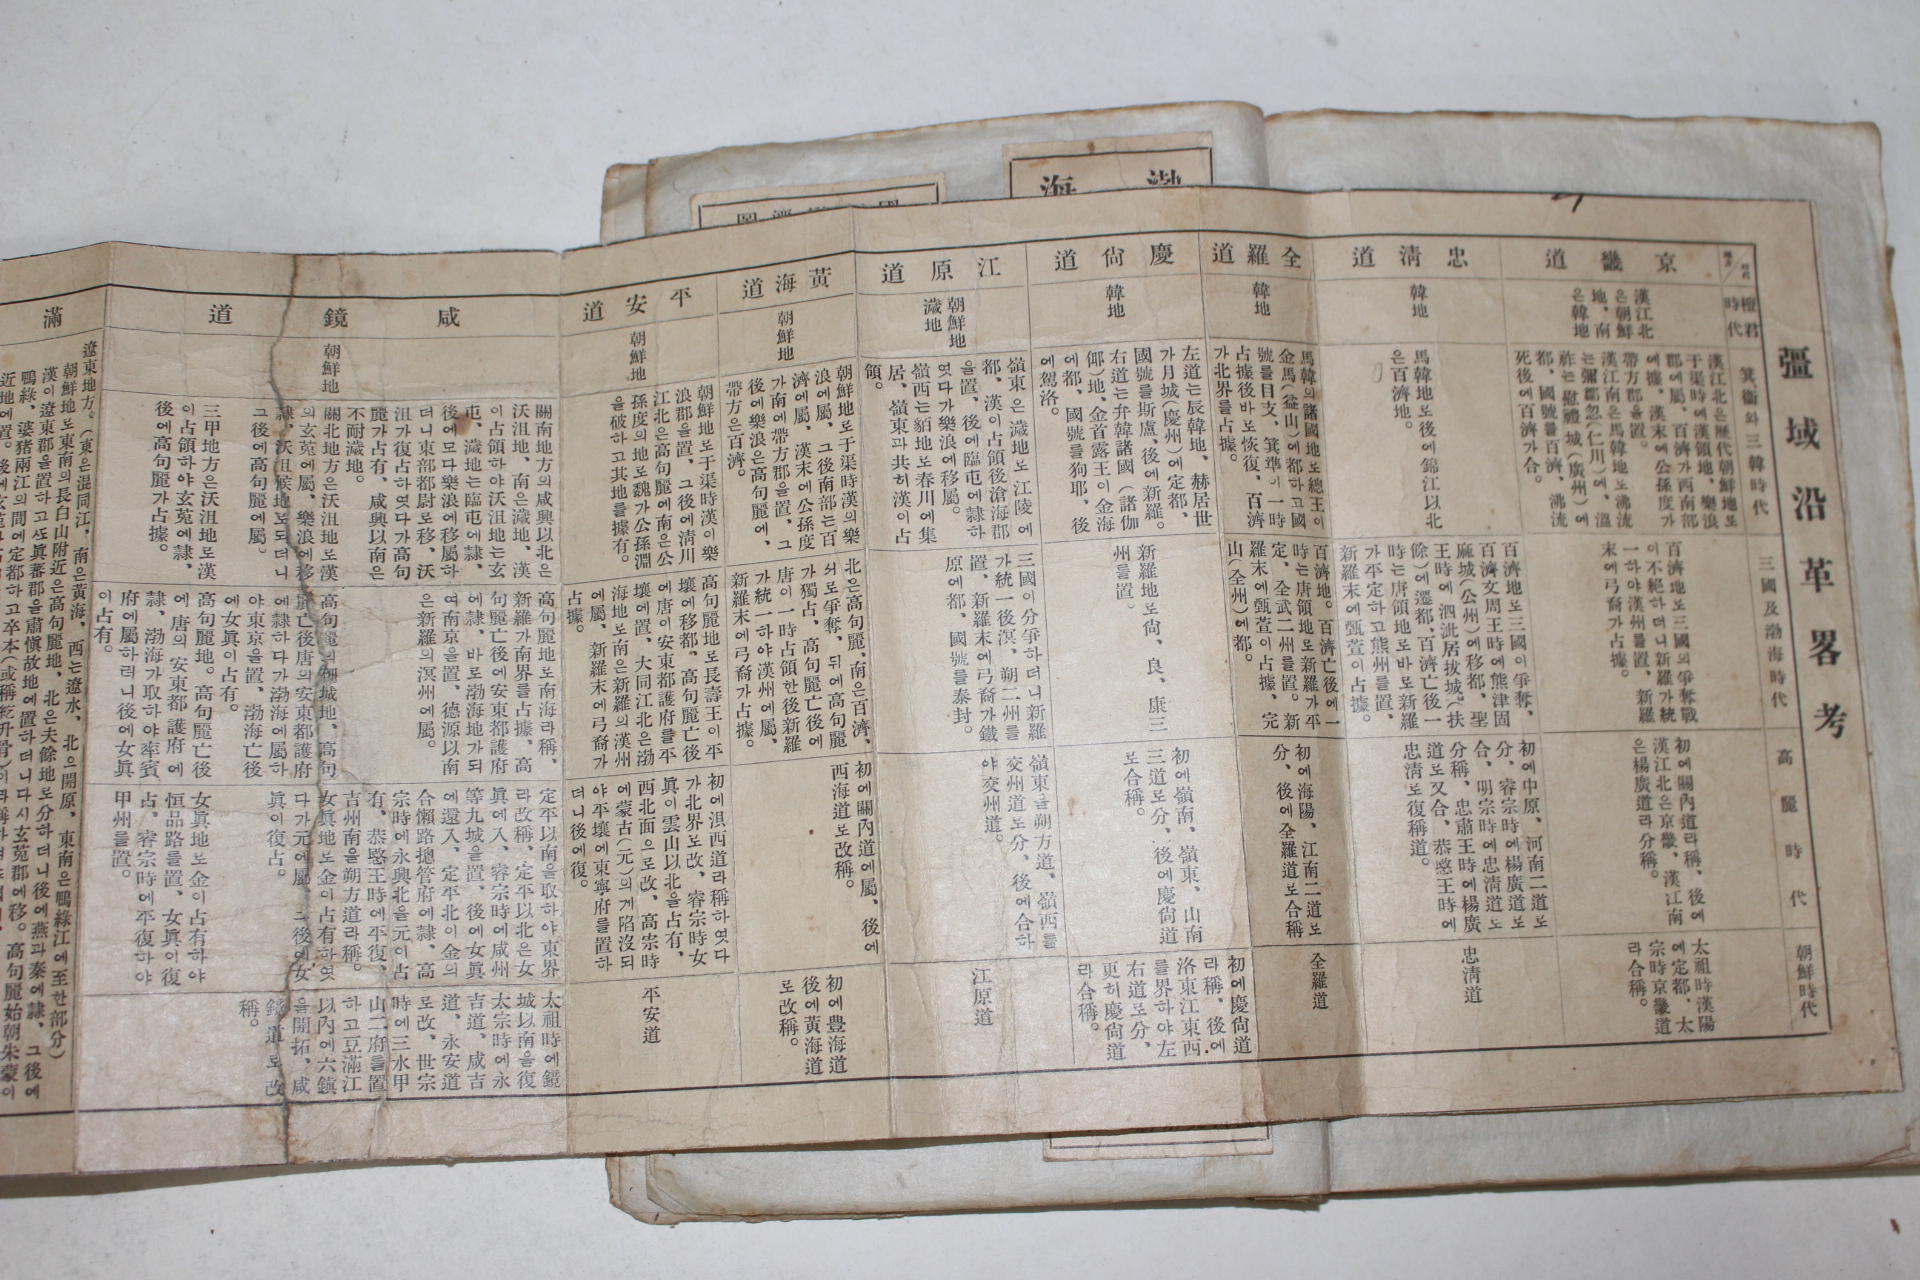 疆域沿革畧考
檀君時代
箕衞와三韓時代
三國及渤海時代
高麗時代
朝鮮時代
京畿道
漢江北
은朝鮮
地、南
은韓地
漢江北은歷代朝鮮地로
于渠時에漢領地、樂浪
郡에屬、百濟가西南部
에據、漢末에公孫度가
帶方郡을置。
漢江南은馬韓地로沸流
는彌鄒忽(仁川)에、溫
祚는慰禮城(廣州)에
都、國號를百濟、沸流
死後에百濟가合。
百濟地로三國의爭奪戰
이不絶하더니新羅가統
一하야漢州를置、新羅
末에弓裔가占據。
初에關內道라稱、後에
漢江北은京畿、漢江南
은楊廣道라分稱。
太祖時漢陽
에定都、太
宗時京畿道
라合稱。
忠淸道
韓地
馬韓地로後에錦江以北
은百濟地。
百濟地로三國이爭奪、
百濟文周王時에熊津固
麻城(公州)에移都、聖
王時에泗沘居拔城(扶
餘)에遷都、百濟亡後一
時는唐領地로바로新羅
가平定하고熊州를置、
新羅末에甄萱이占據。
初에中原、河南二道로
分、睿宗時에楊廣道로
合、明宗時에忠淸道로
分稱、忠肅王時에楊廣
道로又合、恭愍王時에
忠淸로復稱道。
忠淸道
全羅道
韓地
馬韓의諸國地로總王이
金馬(益山)에都하고國
號를目支、箕準이一時
占據後바로恢復、百濟
가北界를占據。
百濟地。百濟亡後에一
時는唐領地로新羅가平
定、全武二州를置。新
羅末에甄萱이占據、完
山(全州)에都。
初에海陽、江南二道로
分、後에全羅道로合稱
全羅道
慶尙道
韓地
左道는辰韓地、赫居世
가月城(慶州)에定都、
國號를斯盧、後에新羅。
右道는弁韓諸國(諸伽
倻)地、金首露王이金海
에都、國號를狗耶、後
에駕洛。
新羅地로尙、良、康三
州를置。
初에嶺南、嶺東、山南
三道로分、後에慶尙道
로合稱。
初에慶尙道
라稱、後에
洛東江東西
를界하야左
右道로分、
更히慶尙道
라合稱。
江原道
朝鮮地
濊地
嶺東은濊地로江陵에
都、漢이占領後滄海郡
을置、後에臨屯에隷하
엿다가樂浪에移屬。
嶺西는貊地로春川에集
居、嶺東과共히漢이占
領。
三國이分爭하더니新羅
가統一後溟、朔二州를
置、新羅末에弓裔가鐵
原에都、國號를泰封。
嶺東을朔方道、嶺西를
交州道로分、後에合하
야交州道。
江原道
黃海道
朝鮮地
朝鮮地로于渠時漢의樂
浪에屬、그後南部는百
濟에屬、漢末에公孫度
가南에帶方郡을置、그
後에樂浪은高句麗에、
帶方은百濟。
北은高句麗、南은百濟、
서로爭奪、뒤에高句麗
가獨占、高句麗亡後에
唐이一時占領한後新羅
가統一하야漢州에屬、
新羅末에弓裔가占據。
初에關內道에屬、後에
西海道로改稱。
初에豊海道
後에黃海道
로改稱。
平安道
朝鮮地
朝鮮地로于渠時漢이樂
浪郡을置、그後에淸川
江北은高句麗에南은公
孫度의地로魏가公孫淵
을破하고其地를據有。
高句麗地로長壽王이平
壤에移都、高句麗亡後
에唐이安東都護府를平
壤에置、大同江北은渤
海地로南은新羅의漢州
에屬、新羅末에弓裔가
占據。
初에浿西道라稱하엿다
가北界로改、睿宗時女
眞이雲山以北을占有、
西北面으로改、高宗時
에蒙古(元)의게陷沒되
야平壤에東寧府를置하
더니後에復。
平安道
咸鏡道
朝鮮地
關南地方의咸興以北은
沃沮地、南은濊地、漢
이占領하야沃沮地는玄
菟、濊地는臨屯에隷、
後에모다樂浪에移屬하
더니東部都尉로移、沃
沮가復占하엿다가高句
麗가占有、咸興以南은
不耐濊地。
關北地方은沃沮地로漢
의玄菟에屬、樂浪에移
隷、沃沮候地로되더니
그後에高句麗에屬。
三甲地方은沃沮地로漢
이占領하야玄菟에隷、
後에高句麗가占據。
高句麗地로南海라稱、
新羅가南界를占據、高
句麗亡後에安東都護府
에隷、바로渤海地가되
여南京을置、德源以南
은新羅의溟州에屬。
高句麗의柵城地、高句
麗亡後唐의安東都護府
에隷하다가渤海에屬하
야東京을置、渤海亡後
에女眞이占有。
高句麗地。高句麗亡後
에唐의安東都護府에
隷、渤海가取하야率賓
府에屬하려니後에女眞
이占有。
定平以南을取하야東界
라改稱、定平以北은女
眞에入、睿宗時에咸州
等九城을置、後에女眞
에還入、定平北이金의
合懶路摠管府에隷、高
宗時에永興北을元이占
有、恭愍王時에平復、
吉州南을朔方道라稱。
女眞地로金이占有하엿
다가元에屬、그後에女
眞이復占。
女眞地로金이占有하야
恒品路를置、女眞이復
占、睿宗時에平復하야
甲州를置。
太祖時에鏡
城以南을復
太宗時에永
吉道、咸吉
道、永安道
로改、世宗
時에三水甲
山二府를置
하고豆滿江
以內에六鎭
을開拓、咸
鏡道로改
稱。
滿
遼東地方。(東은混同江、南은黃海、西는遼水、北으開原、東南은鴨綠江에至한部分)
朝鮮地로東南의長白山附近은高句麗地、北은夫餘地로分하더니後에燕과秦에隷、그後에
漢이遼東郡을置하고또眞蕃郡을肅愼故地에置하더니다시玄菟郡에移。高句麗始朝朱蒙이
鴨綠、婆猪兩江의間에定都하고卒本(或稱紇升骨)이라稱
渤海